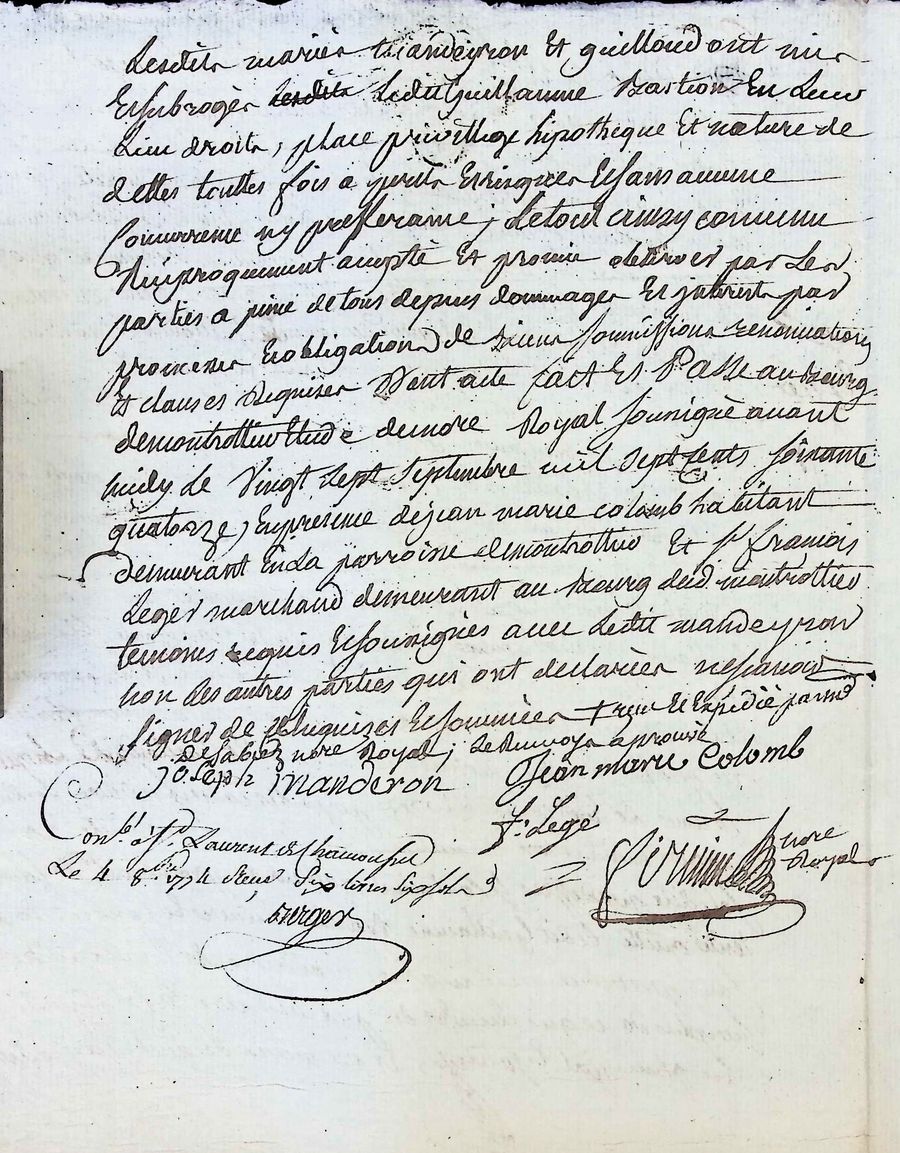 Lesdits mariés Mandeyron Et guilloud ont mis
Et subrogés lesdits Ledit Guillaume Bastion En Leur
Lieu droits, place privillege hipotheque Et nature de
dettes touttes fois a perils Et risques Et sans aucune
Concurrence ny presferance; Le tout ainsy convenu
Reciproquement accepté Et promis observer par Les
parties a peine de tous depens dommages Et interets par
promesses Et obligations de biens soumissions renonciations
Et clauses Requises Dont acte fait Et Passé au bourg
de montrottier Etude de nore Royal soussigné avant
midy le Vingt sept Septembre mil sept cents soixante
quatorze, En presence de jean marie colomb habitant
demeurant En La parroisse de montrottier Et sr francois
Leger marchand demeurant au bourg dud montrottier
temoins requis Et soussignés avec Ledit mandeyron
non des autres parties qui ont declarées ne scavoir
signer de Ce Enquises Et sommées + receu Et Expedié par me
Desablez nore Royal; Le Renvoy aprouvé
Joseph Manderon Jean marie Colomb
fr. Legé
Conlé à St Laurent de Chamousset
Le 4 8bre 1774 Receu Six livres six sols
nore
Royal